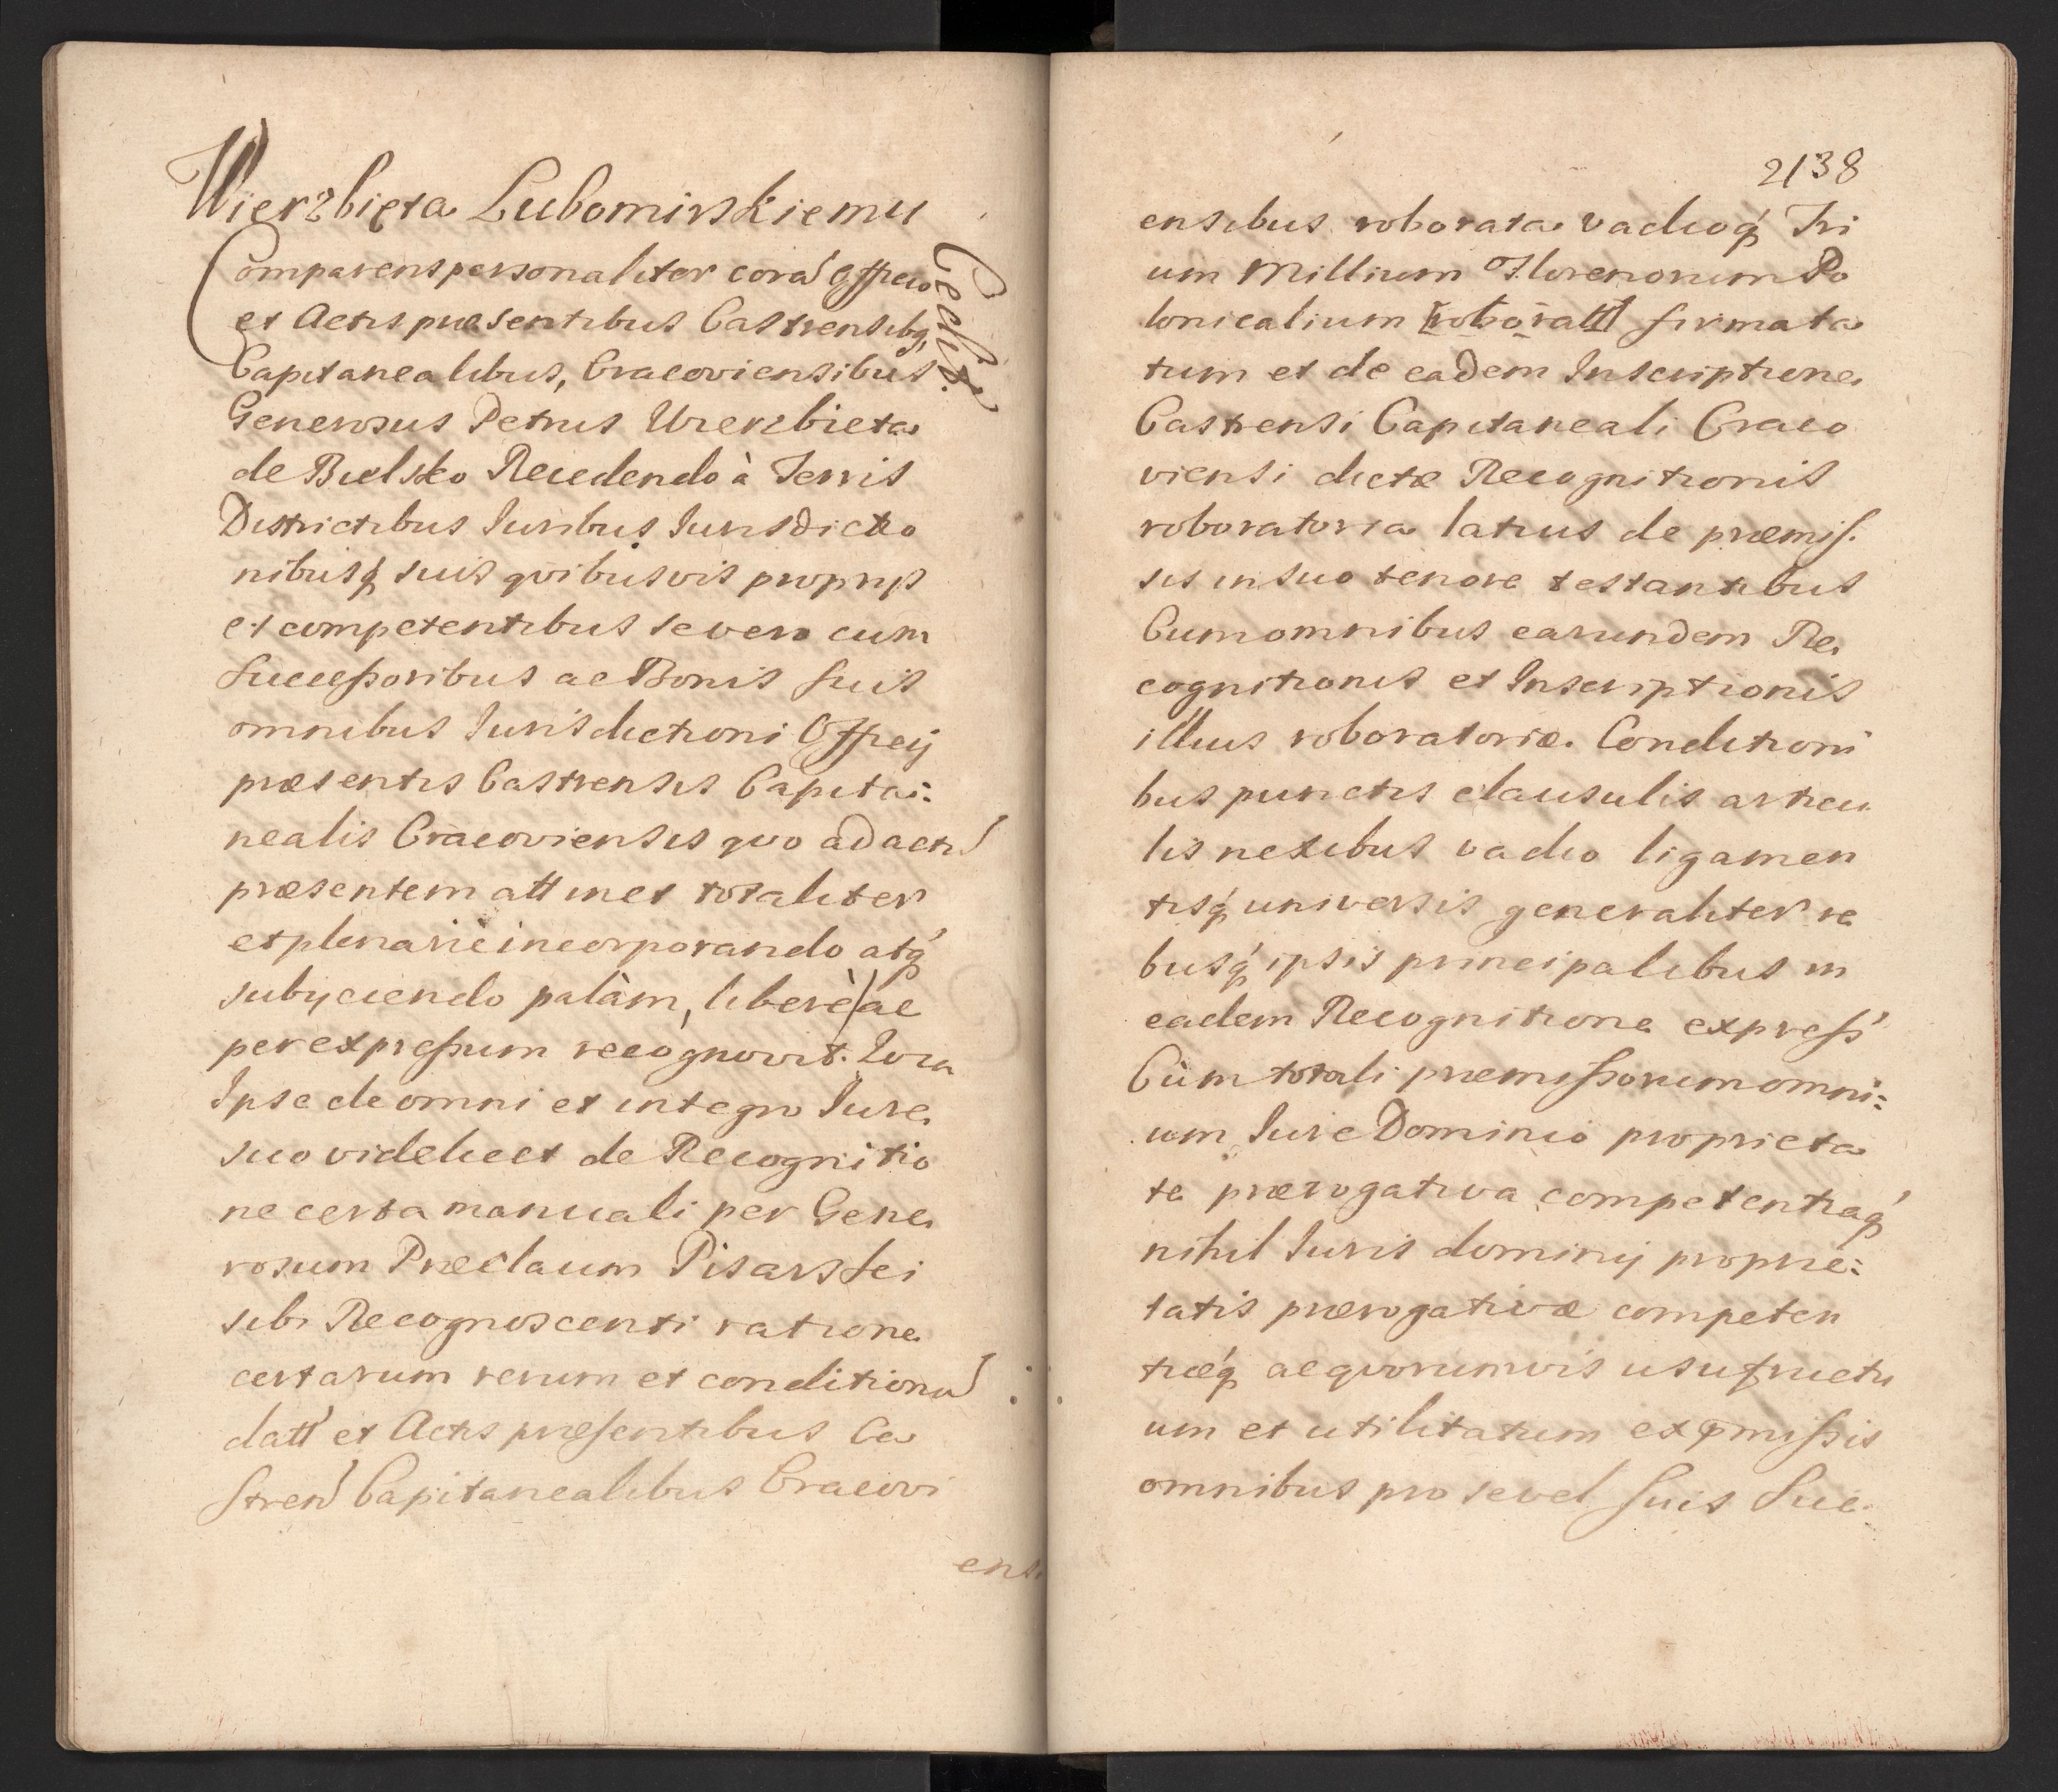 Wierzbięta Lubomirskiemu
Cessit.
Comparens personaliter corã Officio
et Actis præsentibus Castrensibq,
Capitanealibus, Cracoviensibus
Generosus Petrus Wierzbieta
de Bielsko Recedendo à Terris
Districtibus Iuribus Iurisdictio
nibusq́ suis qvibusvis proprijs
et competentibus se vero cum
Successoribus ac Bonis suis
omnibus Iurisdictioni Officij
præsentis Castrensis Capita:
nealis Cracoviensis qvo ad actũ
præsentem attinet totaliter
et plenariè incorporando atq́
subijciendo palàm, liberè ac
per expressum recognovit.
Ipse de omni et integro Iure
suo videlicet de Recognitio
ne certa manuali per Gene
rosum Præclaum Pisarski
sibi Recognoscenti ratione
certarum rerum et conditionũ
datt et Actis præsentibus Ca
stren Capitanealibus Cracovi
ensi
2138
ensibus roborata vadioq́ Tri
um Millium Florenorum Po
lonicalium [roboratt] firmata
tum et de eadem Inscriptione
Castrensi Capitaneali Craco
viensi dictæ Recognitionis
roboratoria latius de præmis.
sis in suo tenore testantibus
Cum omnibus earundem Re
cognitionis et Inscriptionis
illius roboratoriæ. Conditioni
bus punctis clausulis articu
lis nexibus vadio ligamen
tisq́ universis generaliter re
busq́ ipsis principalibus in
eadem Recognitione express'
Cùm totali præmissorum omni:
um Iure Dominio proprieta
te prærogativa competentiaq́
nihil Iuris dominij proprie:
tatis prærogativæ competen
tiæq́ ac qvorumvis usufructu
um et utilitatum ex pmissis
omnibus pro se vel suis Suc.